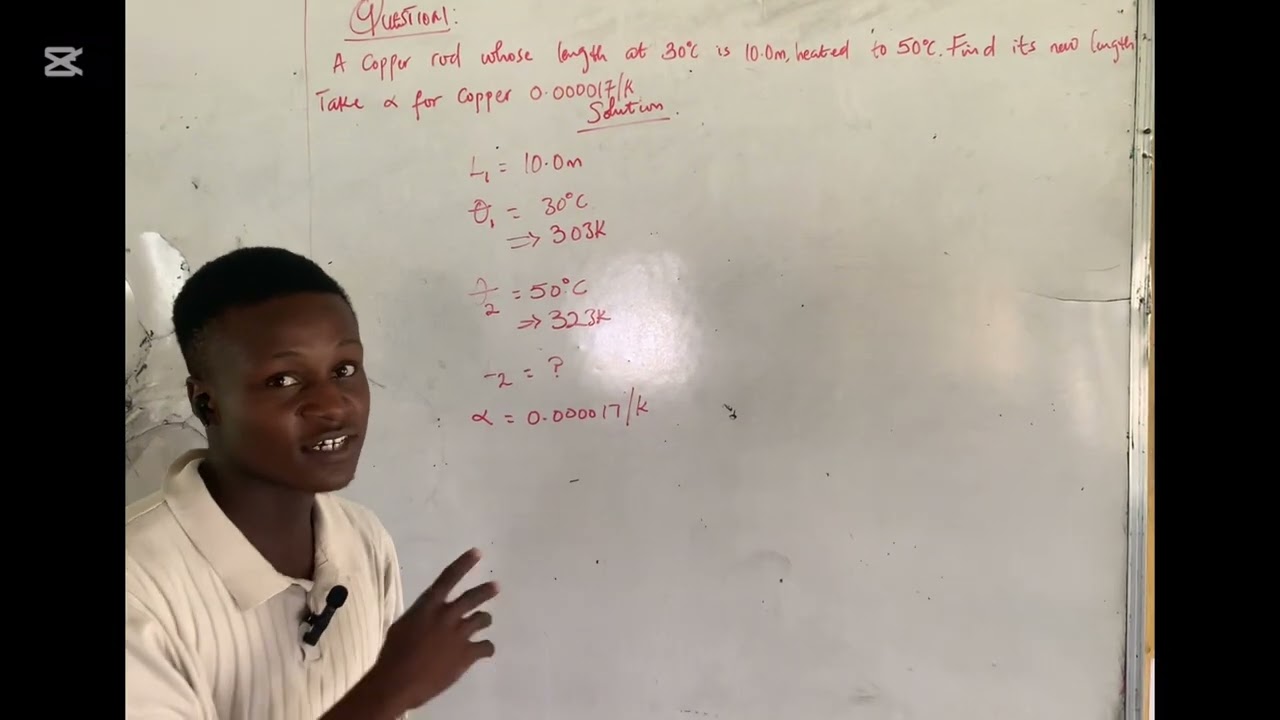 QUESTION:
A Copper rod whose length at 30°C is 10.0m, heated to 50°C. Find its new length
Take α for Copper 0.000017/K
Solution
L₁ = 10.0m
θ₁ = 30°C
⇒ 303K
₂ = 50°C
⇒ 323K
₂ = ?
α = 0.000017/K